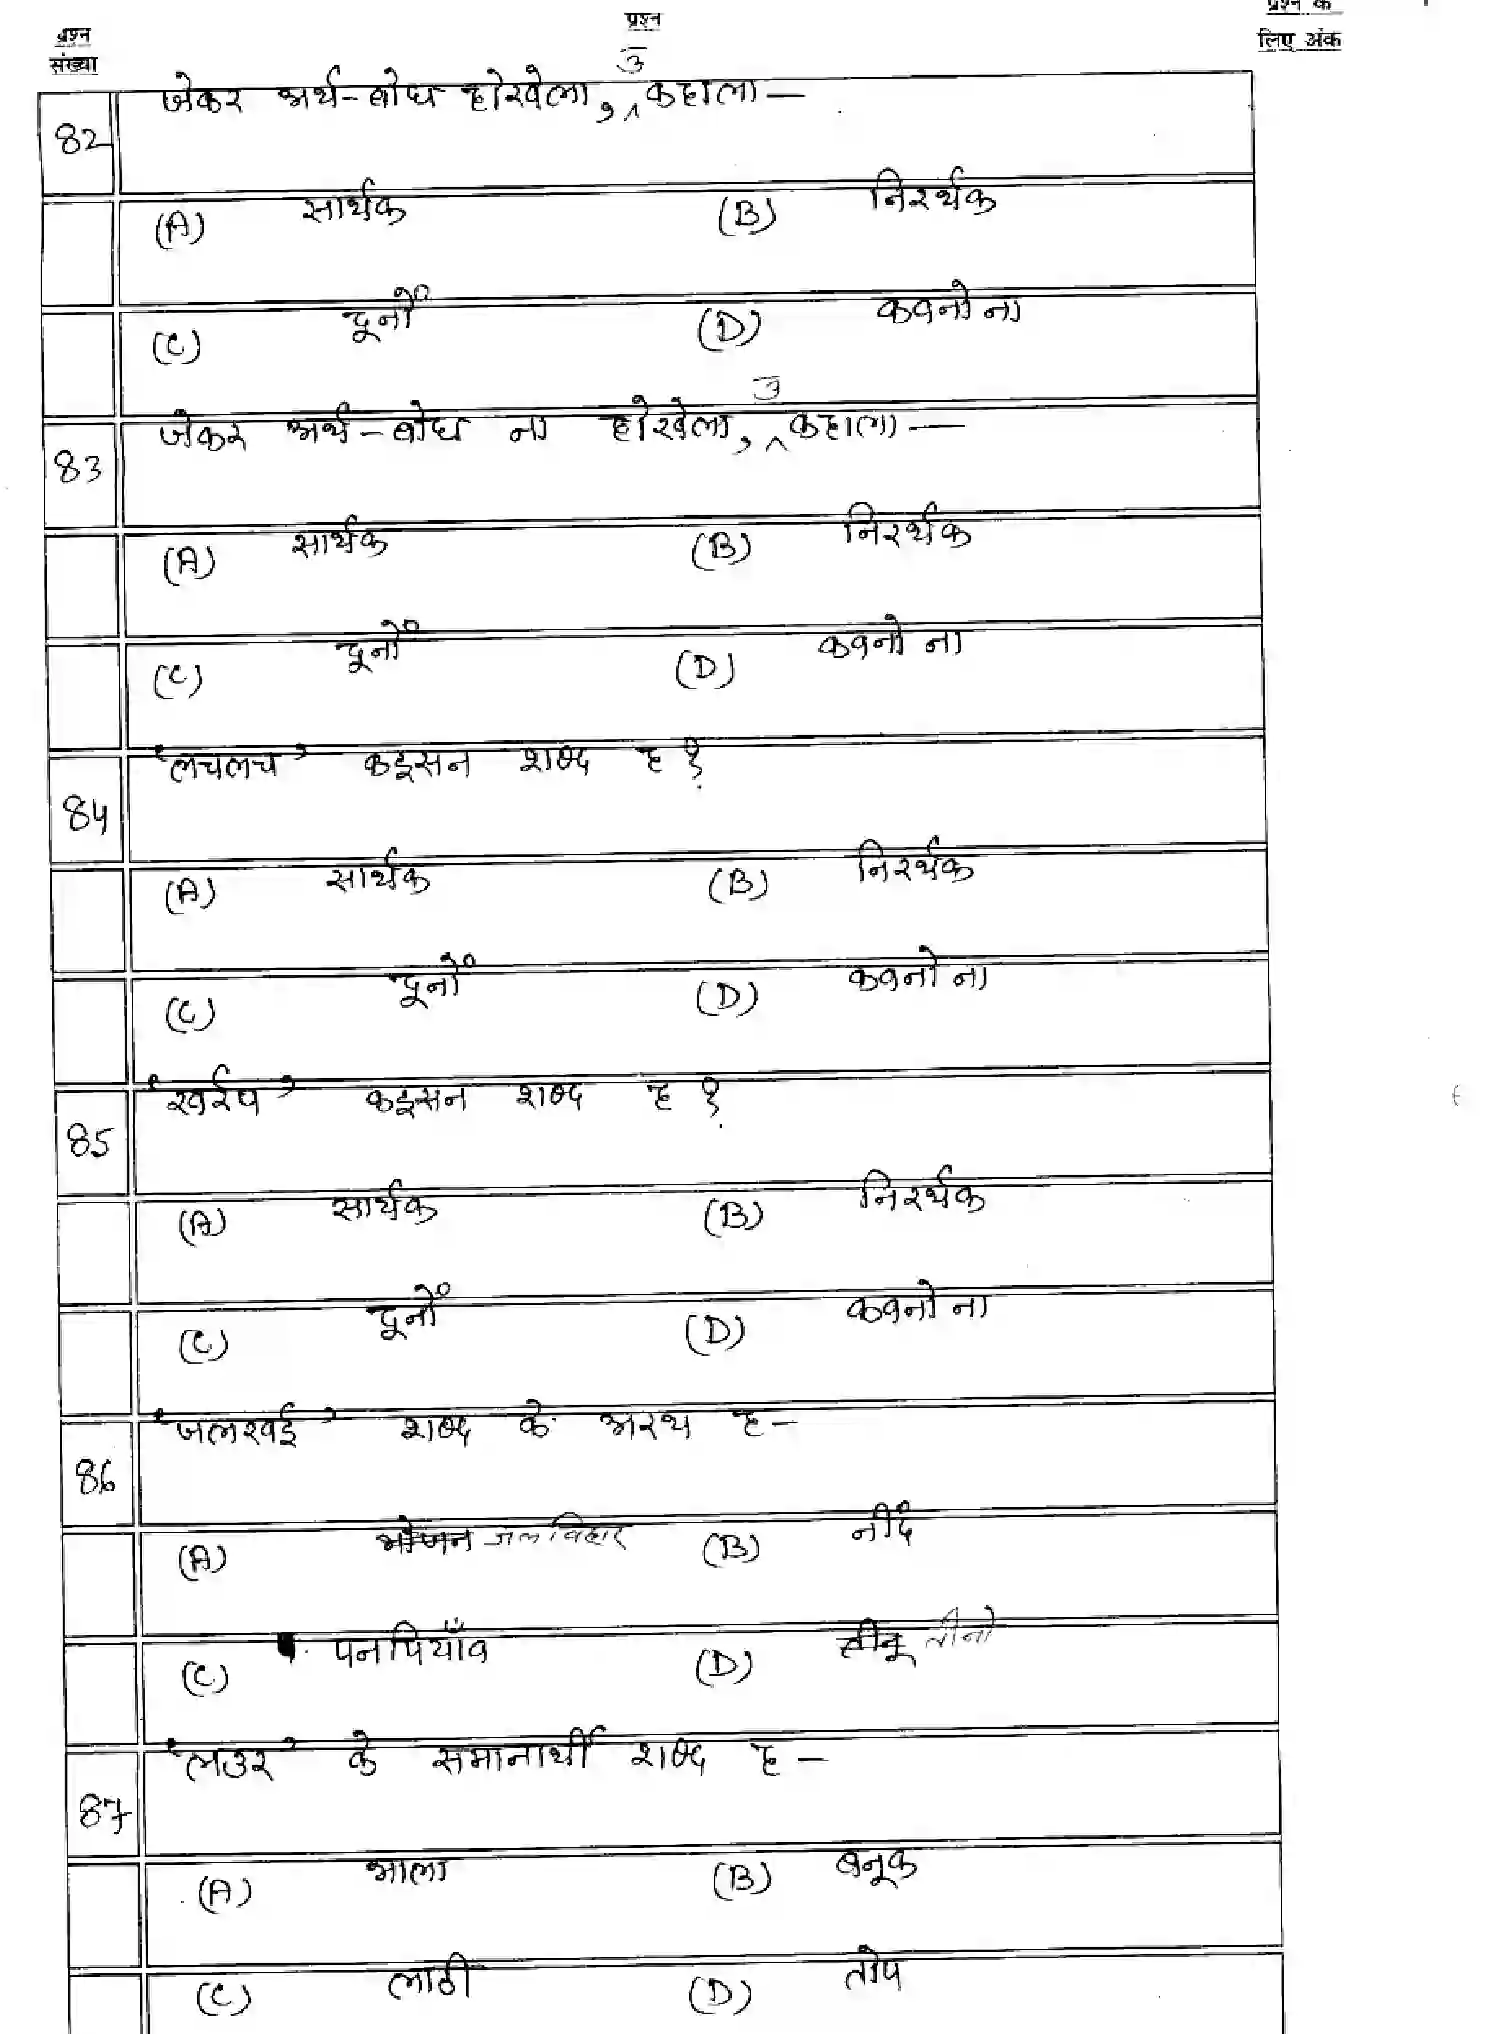 प्रश्न
प्रश्न
संख्या
प्रश्न के
लिए अंक
82 जेकर अर्थ-बोध होखेला, उ कहाला —
(A) सार्थक (B) निरर्थक
(C) दूनों (D) कवनो ना
83 जेकर अर्थ-बोध ना होखेला, उ कहाला —
(A) सार्थक (B) निरर्थक
(C) दूनों (D) कवनो ना
84 'लचलच' कइसन शब्द ह ?
(A) सार्थक (B) निरर्थक
(C) दूनों (D) कवनो ना
85 कइसन शब्द ह ?
(A) सार्थक (B) निरर्थक
(C) दूनों (D) कवनो ना
86 'जलखई' शब्द के अरथ ह –
(A) भोजन जलविहार (B) नींद
(C) पनपियाँव (D) तीनू तीनो
87 'लउर' के समानार्थी शब्द ह –
(A) भाला (B) बनूक
(C) लाठी (D) तोप